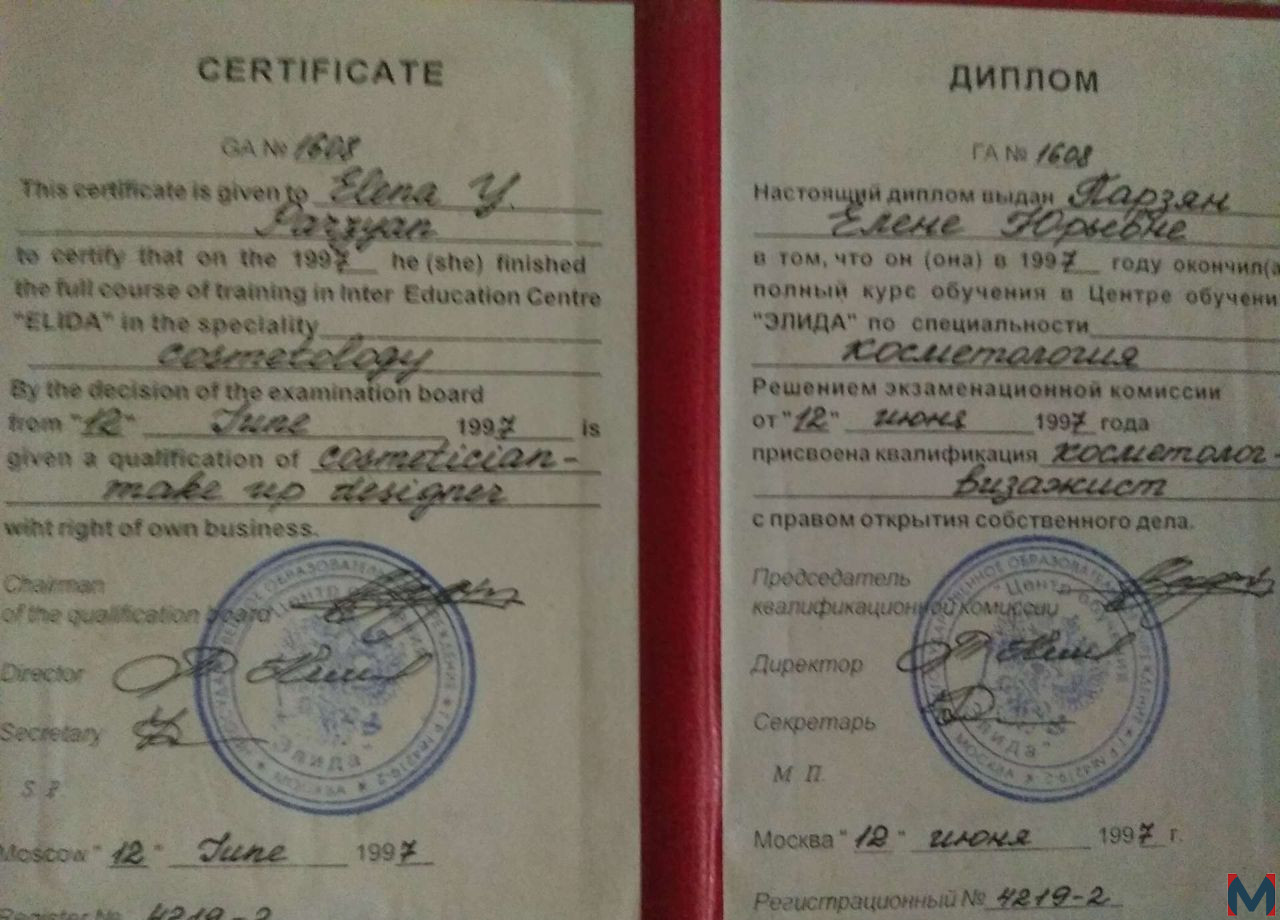 CERTIFICATE
GA № 1608
This certificate is given to Elena Y.
Parzyan
to certify that on the 1997 he (she) finished
the full course of training in Inter Education Centre
"ELIDA" in the speciality
cosmetology
By the decision of the examination board
from "12" June 1997 is
given a qualification of cosmetician-
make up designer
wiht right of own business.
Chairman
of the qualification board
Director
Secretary
S. P.
Moscow "12" June 1997
Register № 4219-2
ДИПЛОМ
ГА № 1608
Настоящий диплом выдан Парзян
Елене Юрьевне
в том, что он (она) в 1997 году окончил(а
полный курс обучения в Центре обучени
"ЭЛИДА" по специальности
косметология
Решением экзаменационной комиссии
от "12" июня 1997 года
присвоена квалификация косметолог-
визажист
с правом открытия собственного дела.
Председатель
квалификационной комиссии
Директор
Секретарь
М П.
Москва "12" июня 1997 г.
Регистрационный № 4219-2
"Центр обучения
"Элида"
МОСКВА
M